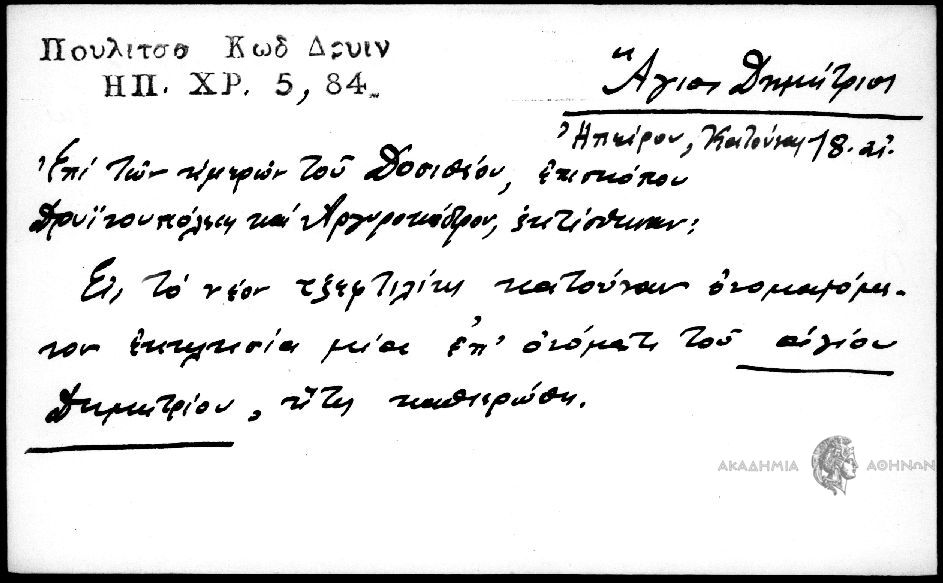 Πουλιτσα Κωδ Δρυιν
ΗΠ. ΧΡ. 5, 84
Ἅγιος Δημήτριος
Ἠπείρου, Κατούνα 18. αἰ.
Ἐπί τῶν ἡμερῶν τοῦ Δοσιθέου, ἐπισκόπου
Δρυϊνουπόλεως καί Ἀργυροκάστρου, ἐκτίσθησαν:
Εἰς τό νέον κατούναν ὀνομαζόμε-
νον ἐκκλησία μία ἐπ' ὀνόματι τοῦ ἁγίου
Δημητρίου, ἥτις καθιερώθη.
ΑΚΑΔΗΜΙΑ ΑΘΗΝΩΝ